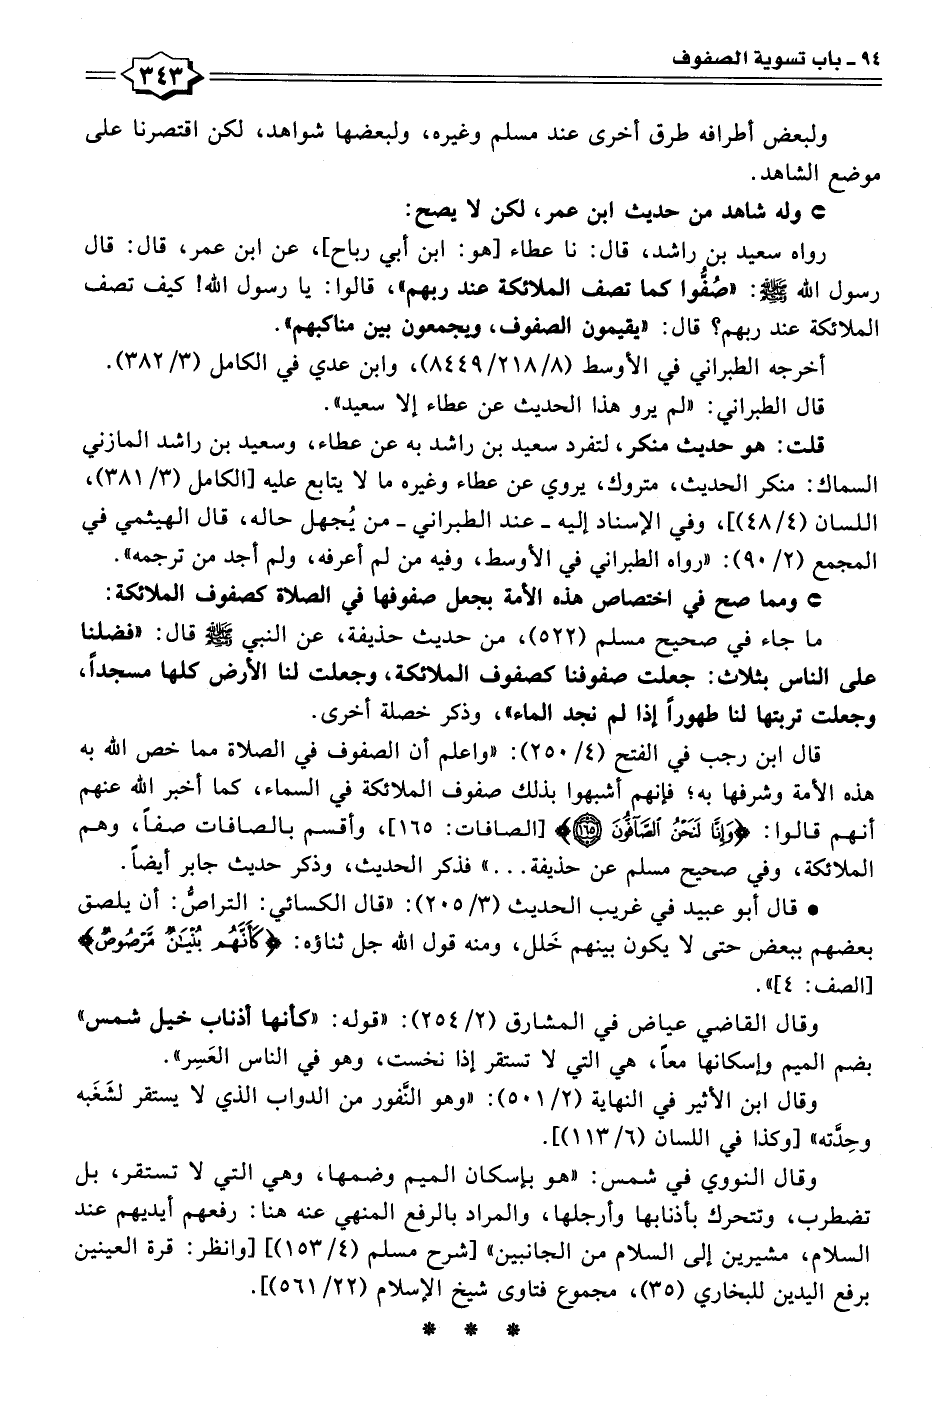 ٩٤ - باب تسوية الصفوف
٣٤٣
ولبعض أطرافه طرق أخرى عند مسلم وغيره، ولبعضها شواهد، لكن اقتصرنا على
موضع الشاهد.
⊃ وله شاهد من حديث ابن عمر، لكن لا يصح:
رواه سعيد بن راشد، قال: نا عطاء [هو: ابن أبي رباح]، عن ابن عمر، قال: قال
رسول الله ﷺ: «صُفُّوا كما تصف الملائكة عند ربهم»، قالوا: يا رسول الله! كيف تصف
الملائكة عند ربهم؟ قال: «يقيمون الصفوف، ويجمعون بين مناكبهم».
أخرجه الطبراني في الأوسط (٨/٢١٨/٨٤٤٩)، وابن عدي في الكامل (٣/٣٨٢).
قال الطبراني: «لم يرو هذا الحديث عن عطاء إلا سعيد».
قلت: هو حديث منكر، لتفرد سعيد بن راشد به عن عطاء، وسعيد بن راشد المازني
السماك: منكر الحديث، متروك، يروي عن عطاء وغيره ما لا يتابع عليه [الكامل (٣/٣٨١)،
اللسان (٤/٤٨)]، وفي الإسناد إليه - عند الطبراني - من يُجهل حاله، قال الهيثمي في
المجمع (٢/٩٠): «رواه الطبراني في الأوسط، وفيه من لم أعرفه، ولم أجد من ترجمه».
⊃ ومما صح في اختصاص هذه الأمة بجعل صفوفها في الصلاة كصفوف الملائكة:
ما جاء في صحيح مسلم (٥٢٢)، من حديث حذيفة، عن النبي ﷺ قال: «فضلنا
على الناس بثلاث: جعلت صفوفنا كصفوف الملائكة، وجعلت لنا الأرض كلها مسجداً،
وجعلت تربتها لنا طهوراً إذا لم نجد الماء»، وذكر خصلة أخرى.
قال ابن رجب في الفتح (٤/٢٥٠): «واعلم أن الصفوف في الصلاة مما خص الله به
هذه الأمة وشرفها به؛ فإنهم أشبهوا بذلك صفوف الملائكة في السماء، كما أخبر الله عنهم
أنهم قالوا: ﴿وَإِنَّا لَنَحْنُ الصَّافُّونَ ١٦٥﴾ [الصافات: ١٦٥]، وأقسم بالصافات صفاً، وهم
الملائكة، وفي صحيح مسلم عن حذيفة...» فذكر الحديث، وذكر حديث جابر أيضاً.
• قال أبو عبيد في غريب الحديث (٣/٢٠٥): «قال الكسائي: التراصُّ: أن يلصق
بعضهم ببعض حتى لا يكون بينهم خَلل، ومنه قول الله جل ثناؤه: ﴿كَأَنَّهُم بُنْيَٰنٌ مَّرْصُوصٌ﴾
[الصف: ٤]».
وقال القاضي عياض في المشارق (٢/٢٥٤): «قوله: «كأنها أذناب خيل شمس»
بضم الميم وإسكانها معاً، هي التي لا تستقر إذا نخست، وهو في الناس العَسِر».
وقال ابن الأثير في النهاية (٢/٥٠١): «وهو النَّفور من الدواب الذي لا يستقر لشَغَبه
وحِدَّته» [وكذا في اللسان (٦/١١٣)].
وقال النووي في شمس: «هو بإسكان الميم وضمها، وهي التي لا تستقر، بل
تضطرب، وتتحرك بأذنابها وأرجلها، والمراد بالرفع المنهي عنه هنا: رفعهم أيديهم عند
السلام، مشيرين إلى السلام من الجانبين» [شرح مسلم (٤/١٥٣)] [وانظر: قرة العينين
برفع اليدين للبخاري (٣٥)، مجموع فتاوى شيخ الإسلام (٢٢/٥٦١)].
* * *